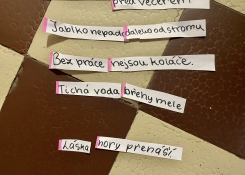 před večerem
Jablko nepadá daleko od stromu
Bez práce nejsou koláče.
Tichá voda břehy mele
Láska hory přenáší.